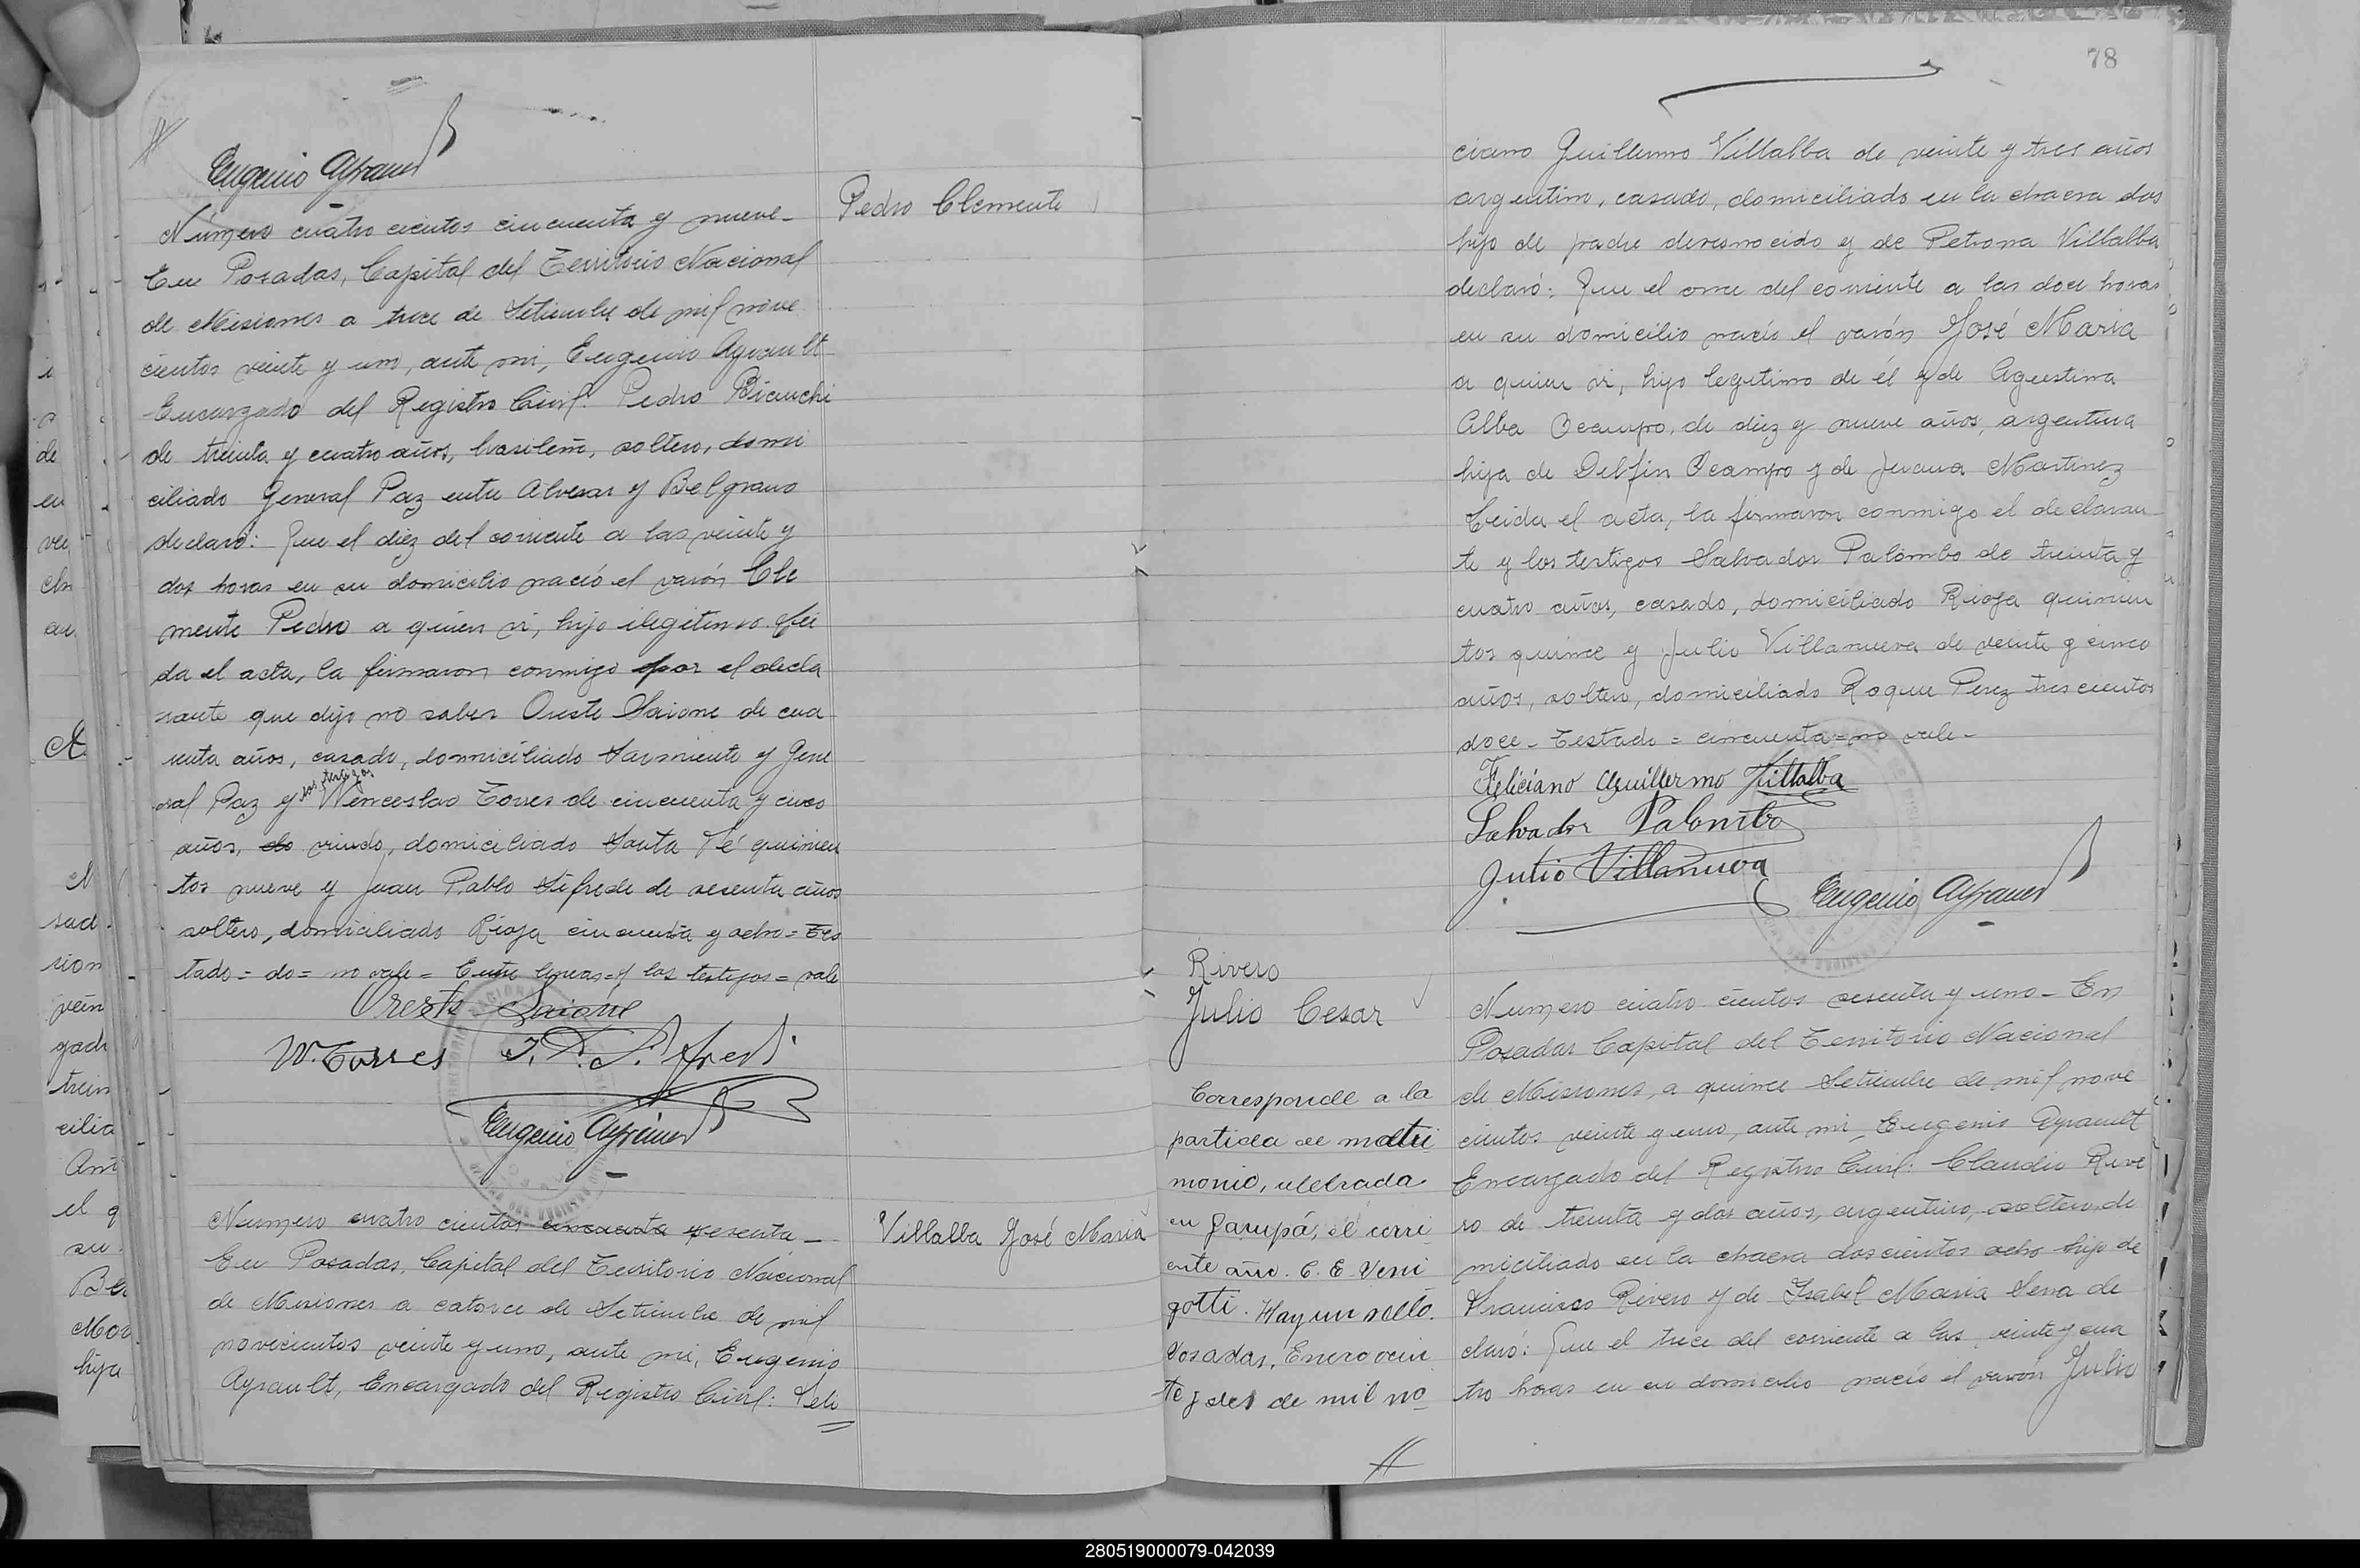 Eugenio Ayrault
Pedro Clemente
Número cuatro cientos cincuenta y nueve-
En Posadas, Capital del Territorio Nacional
de Misiones a trece de Setiembre de mil nove
cientos veinte y uno, ante mi, Eugenio Ayrault
Encargado del Registro Civil: Pedro Bianchi
de treinta y cuatro años, brasileño, soltero, domi
ciliado General Paz entre Alvear y Belgrano
declaró: Que el diez del corriente a las veinte y
dos horas en su domicilio nació el varón Cle
mente Pedro a quien vi, hijo ilegitimo. Lei
da el acta, la firmaron conmigo por el decla
rante que dijo no saber Oreste Saione de cua
renta años, casado, domiciliado Sarmiento y Gene
ral Paz y los testigos Wenceslao Torres de cincuenta y cinco
años, do viudo, domiciliado Santa Fé quinien
tos nueve y Juan Pablo Sifrede de sesenta años
soltero, domiciliado Rioja cincuenta y ocho = Tes
tado = do = no vale = Entre lineas = y los testigos = vale
Oreste Saione
W. Torres J. P. Sifredi
Eugenio Ayrault
Villalba José Maria
Numero cuatro cientos cincuenta sesenta -
En Posadas, Capital del Territorio Nacional
de Misiones a catorce de Setiembre de mil
novecientos veinte y uno, ante mi, Eugenio
Ayrault, Encargado del Registro Civil: Feli
78
ciano Guillermo Villalba de veinte y tres años
argentino, casado, domiciliado en la chacra dos
hijo de padre desconocido y de Petrona Villalba
declaró: Que el once del corriente a las doce horas
en su domicilio nació el varón José Maria
a quien vi, hijo legitimo de él y de Agustina
Alba Ocampo, de diez y nueve años, argentina
hija de Delfin Ocampo y de Juana Martinez
Leida el acta, la firmaron conmigo el declaran
te y los testigos Salvador Palombo de treinta y
cuatro años, casado, domiciliado Rioja quinien
tos quince y Julio Villanueva de veinte y cinco
años, soltero, domiciliado Roque Perez tres cientos
doce - Testado = cincuenta = no vale -
Feliciano Guillermo Villalba
Salvador Palombo
Julio Villanueva
Eugenio Ayrault
Rivero
Julio Cesar
Corresponde a la
partida de matri
monio, celebrada
en Garupá, el corri
ente año. C. E. Veni
gotti. Hay un sello.
Posadas, Enero vein
te y dos de mil no
Numero cuatro cientos sesenta y uno - En
Posadas Capital del Territorio Nacional
de Misiones, a quince Setiembre de mil nove
cientos veinte y uno, ante mi, Eugenio Ayrault
Encargado del Registro Civil: Claudio Rive
ro de treinta y dos años, argentino, soltero, do
miciliado en la chacra doscientos ocho hijo de
Francisco Rivero y de Isabel Maria Sena de
claró: Que el trece del corriente a las veinte y cua
tro horas en su domicilio nació el varón Julio
280519000079-042039